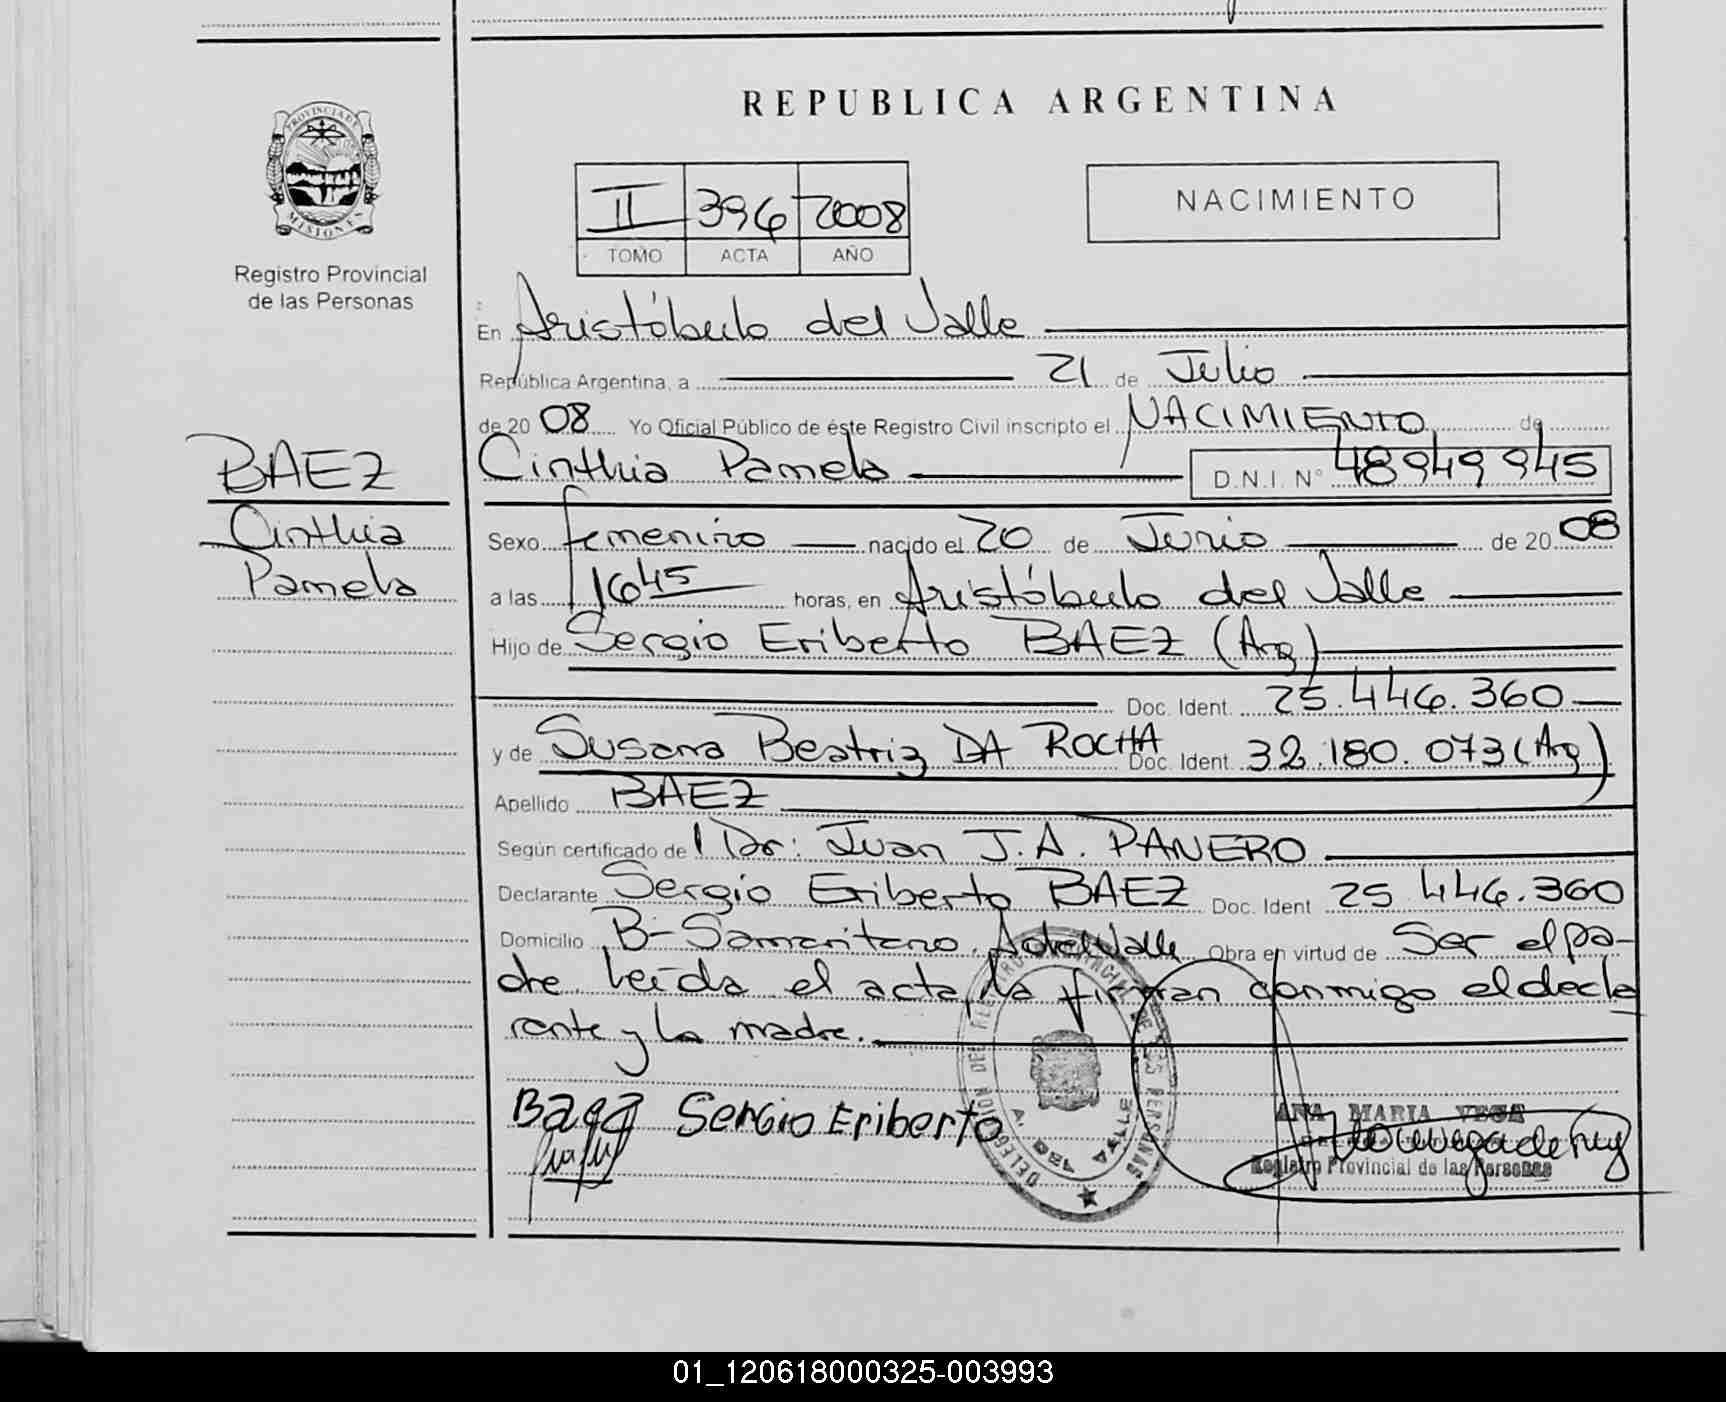 REPUBLICA ARGENTINA
PROVINCIA DE
MISIONES
Registro Provincial
de las Personas
II 396 2008
TOMO ACTA AÑO
NACIMIENTO
En Aristóbulo del Valle
República Argentina, a 21 de Julio
de 20 08 Yo Oficial Público de éste Registro Civil inscripto el NACIMIENTO de
BAEZ
Cinthia Pamela D.N.I. N° 48949945
Cinthia
Sexo femenino nacido el 20 de Junio de 20 08
Pamela
a las 16 45 horas, en Aristóbulo del Valle
Hijo de Sergio Eriberto BAEZ (Arg)
Doc. Ident. 25.446.360
y de Susana Beatriz DA ROCHA Doc. Ident. 32.180.073 (Arg)
Apellido BAEZ
Según certificado de Dr: Juan J.A. PANERO
Declarante Sergio Eriberto BAEZ Doc. Ident 25 446.360
Domicilio B- Samaritano. A del Valle Obra en virtud de Ser el pa-
dre. Leída el acta, la firman conmigo el decla
rante y la madre.
DELEGACION DEL REGISTRO PROVINCIAL DE LAS PERSONAS
A. DEL VALLE
Baez Sergio Eriberto
ANA MARIA VEGA
Registro Provincial de las Personas
01_120618000325-003993